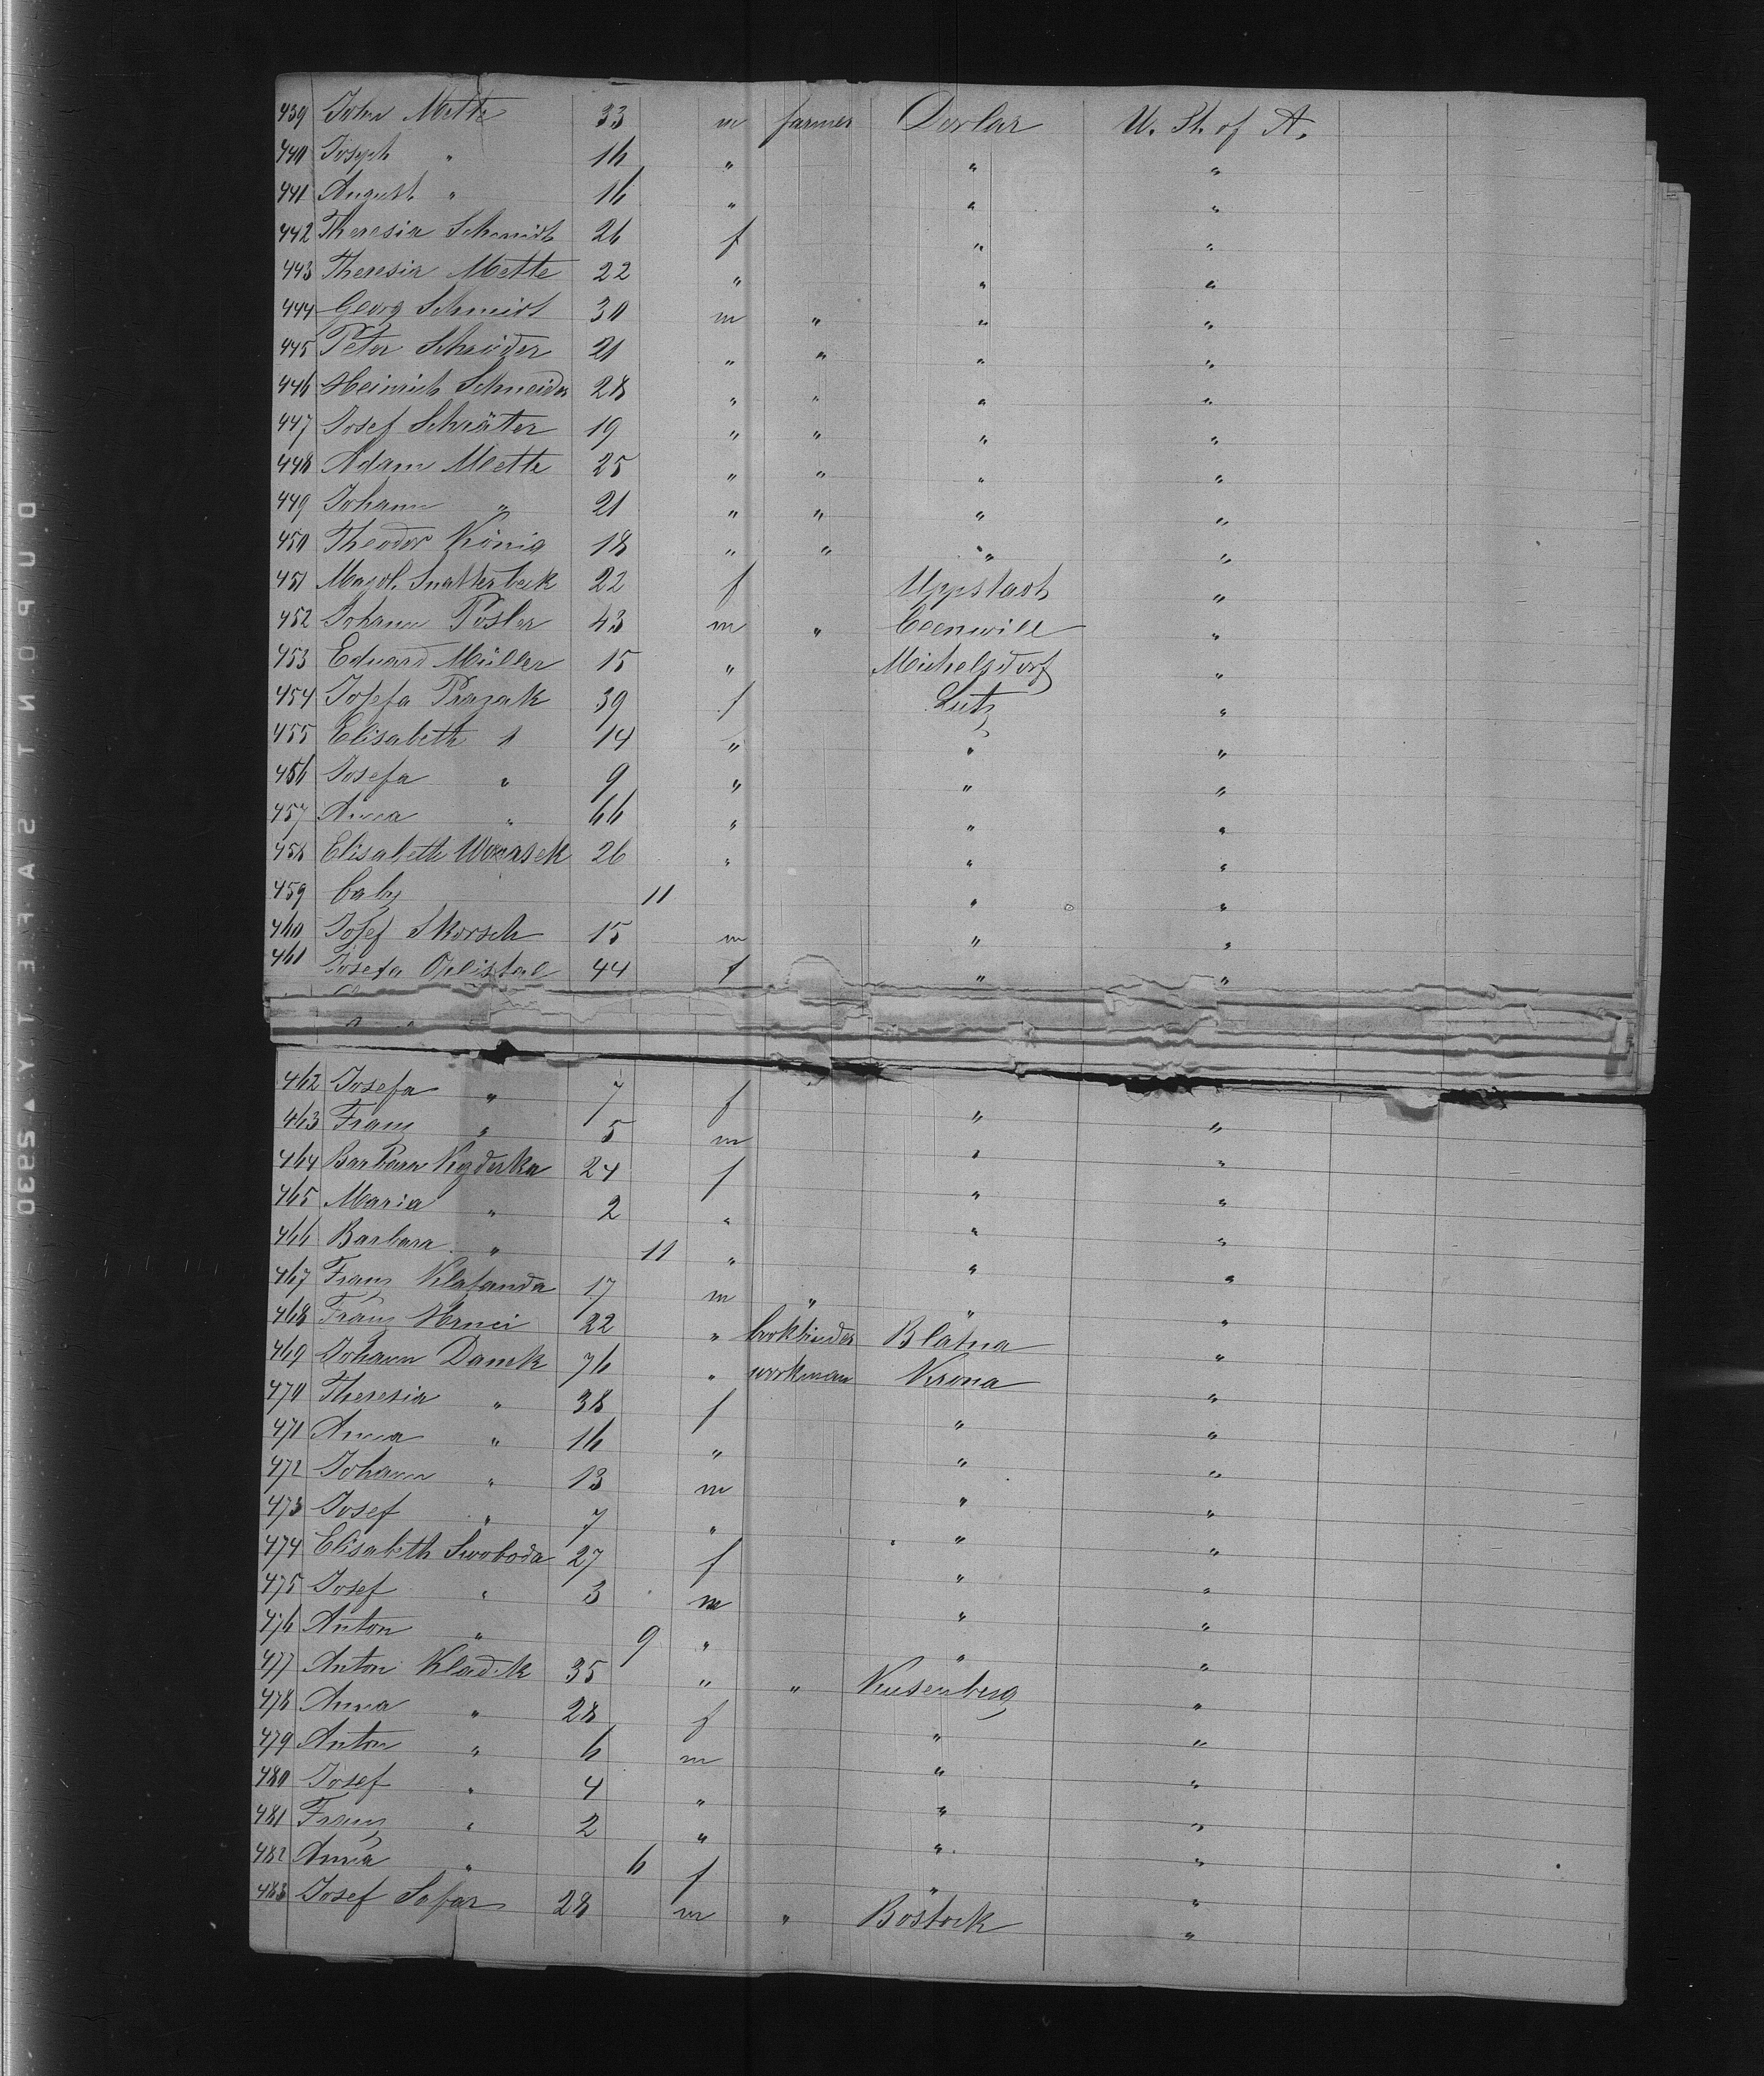 439 John Mette 33 m farmer Dorlar U. St. of A.
440 Joseph " 16 " " "
441 August " 16 " " "
442 Theresia Schmidt 26 f " "
443 Theresia Mette 22 " " "
444 Georg Schmidt 30 m " " "
445 Peter Schröder 21 " " " "
446 Heinrich Schneider 28 " " " "
447 Josef Schröter 19 " " " "
448 Adam Mette 25 " " " "
449 Johann " 21 " " " "
450 Theodor König 18 " " " "
451 Magdl. Snatterbeck 22 f "
452 Johann Posler 43 m " "
453 Eduard Müller 15 " Michelsdorf "
454 Josefa Prazak 39 f Lutz "
455 Elisabeth " 14 " " "
456 Josefa " 9 " " "
457 Anna " 66 " " "
458 Elisabeth 26 " " "
459 baby 11 " "
460 Josef Skorsch 15 m " "
461 Josefa 44 f " "
462 Josefa " 7 f " "
463 Franz " 5 m " "
464 Barbara 24 f " "
465 Maria " 2 " " "
466 Barbara " 11 " " "
467 Franz 17 m " " "
468 Franz 22 " bookbinder Blatna "
469 Johann Danek 76 " workman Krona "
470 Theresia " 38 f " "
471 Anna " 16 " " "
472 Johann " 13 m " "
473 Josef " 7 " " "
474 Elisabeth Swoboda 27 f " "
475 Josef " 3 m " "
476 Anton " 9 " " "
477 Anton Kladek 35 " " "
478 Anna " 28 f " "
479 Anton " 6 m " "
480 Josef " 4 " " "
481 Franz " 2 " " "
482 Anna " 6 f " "
483 Josef Safar 28 m " Bostock "
DUPONT SAFETY